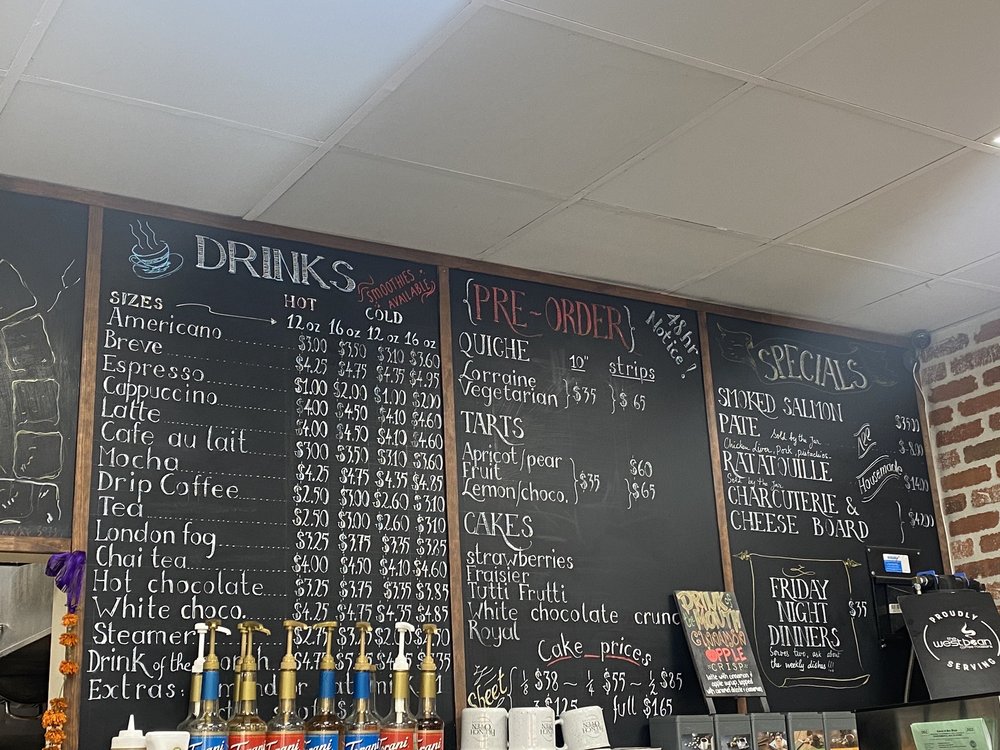 DRINKS
SMOOTHIES AVAILABLE
SIZES HOT COLD
12 oz 16 oz 12 oz 16 oz
Americano $3.00 $3.50 $3.10 $3.60
Breve $4.25 $4.75 $4.35 $4.95
Espresso $1.00 $2.00 $1.00 $2.00
Cappuccino $4.00 $4.50 $4.10 $4.60
Latte $4.00 $4.50 $4.10 $4.60
Cafe au lait $3.00 $3.50 $3.10 $3.60
Mocha $4.25 $4.75 $4.35 $4.85
Drip Coffee $2.50 $3.00 $2.60 $3.10
Tea $2.50 $3.00 $2.60 $3.10
London fog $3.25 $3.75 $3.35 $3.85
Chai tea $4.00 $4.50 $4.10 $4.60
Hot chocolate $3.25 $3.75 $3.35 $3.85
White choco. $4.25 $4.75 $4.35 $4.85
Steamer
Drink of the
Extras:
PRE-ORDER
48hr Notice!
QUICHE 10" strips
Lorraine
Vegetarian $35 $65
TARTS
Apricot/pear $60
Fruit $35
Lemon/choco. $65
CAKES
strawberries
Fraisier
Tutti Frutti
White chocolate crunc
Royal
Cake prices
sheet 1/8 $38 ~ 1/4 $55 ~ 1/2 $85
$125 full $165
SPECIALS
SMOKED SALMON $35.00
PATE Sold by the Jar $8.00
Chicken liver, Pork, pistachios..
RATATOUILLE $14.00
Sold by the Jar
Housemade
CHARCUTERIE &
CHEESE BOARD $42.00
FRIDAY
NIGHT
DINNERS $35
Serves two, ask about
the weekly dishes!!!
DRINK OF THE
MOUTH
CINNAMON
APPLE
CRISP
latte with cinnamon &
apple syrup topped
PROUDLY
westbean
SERVING
Torani
Torani
Torani
Torani